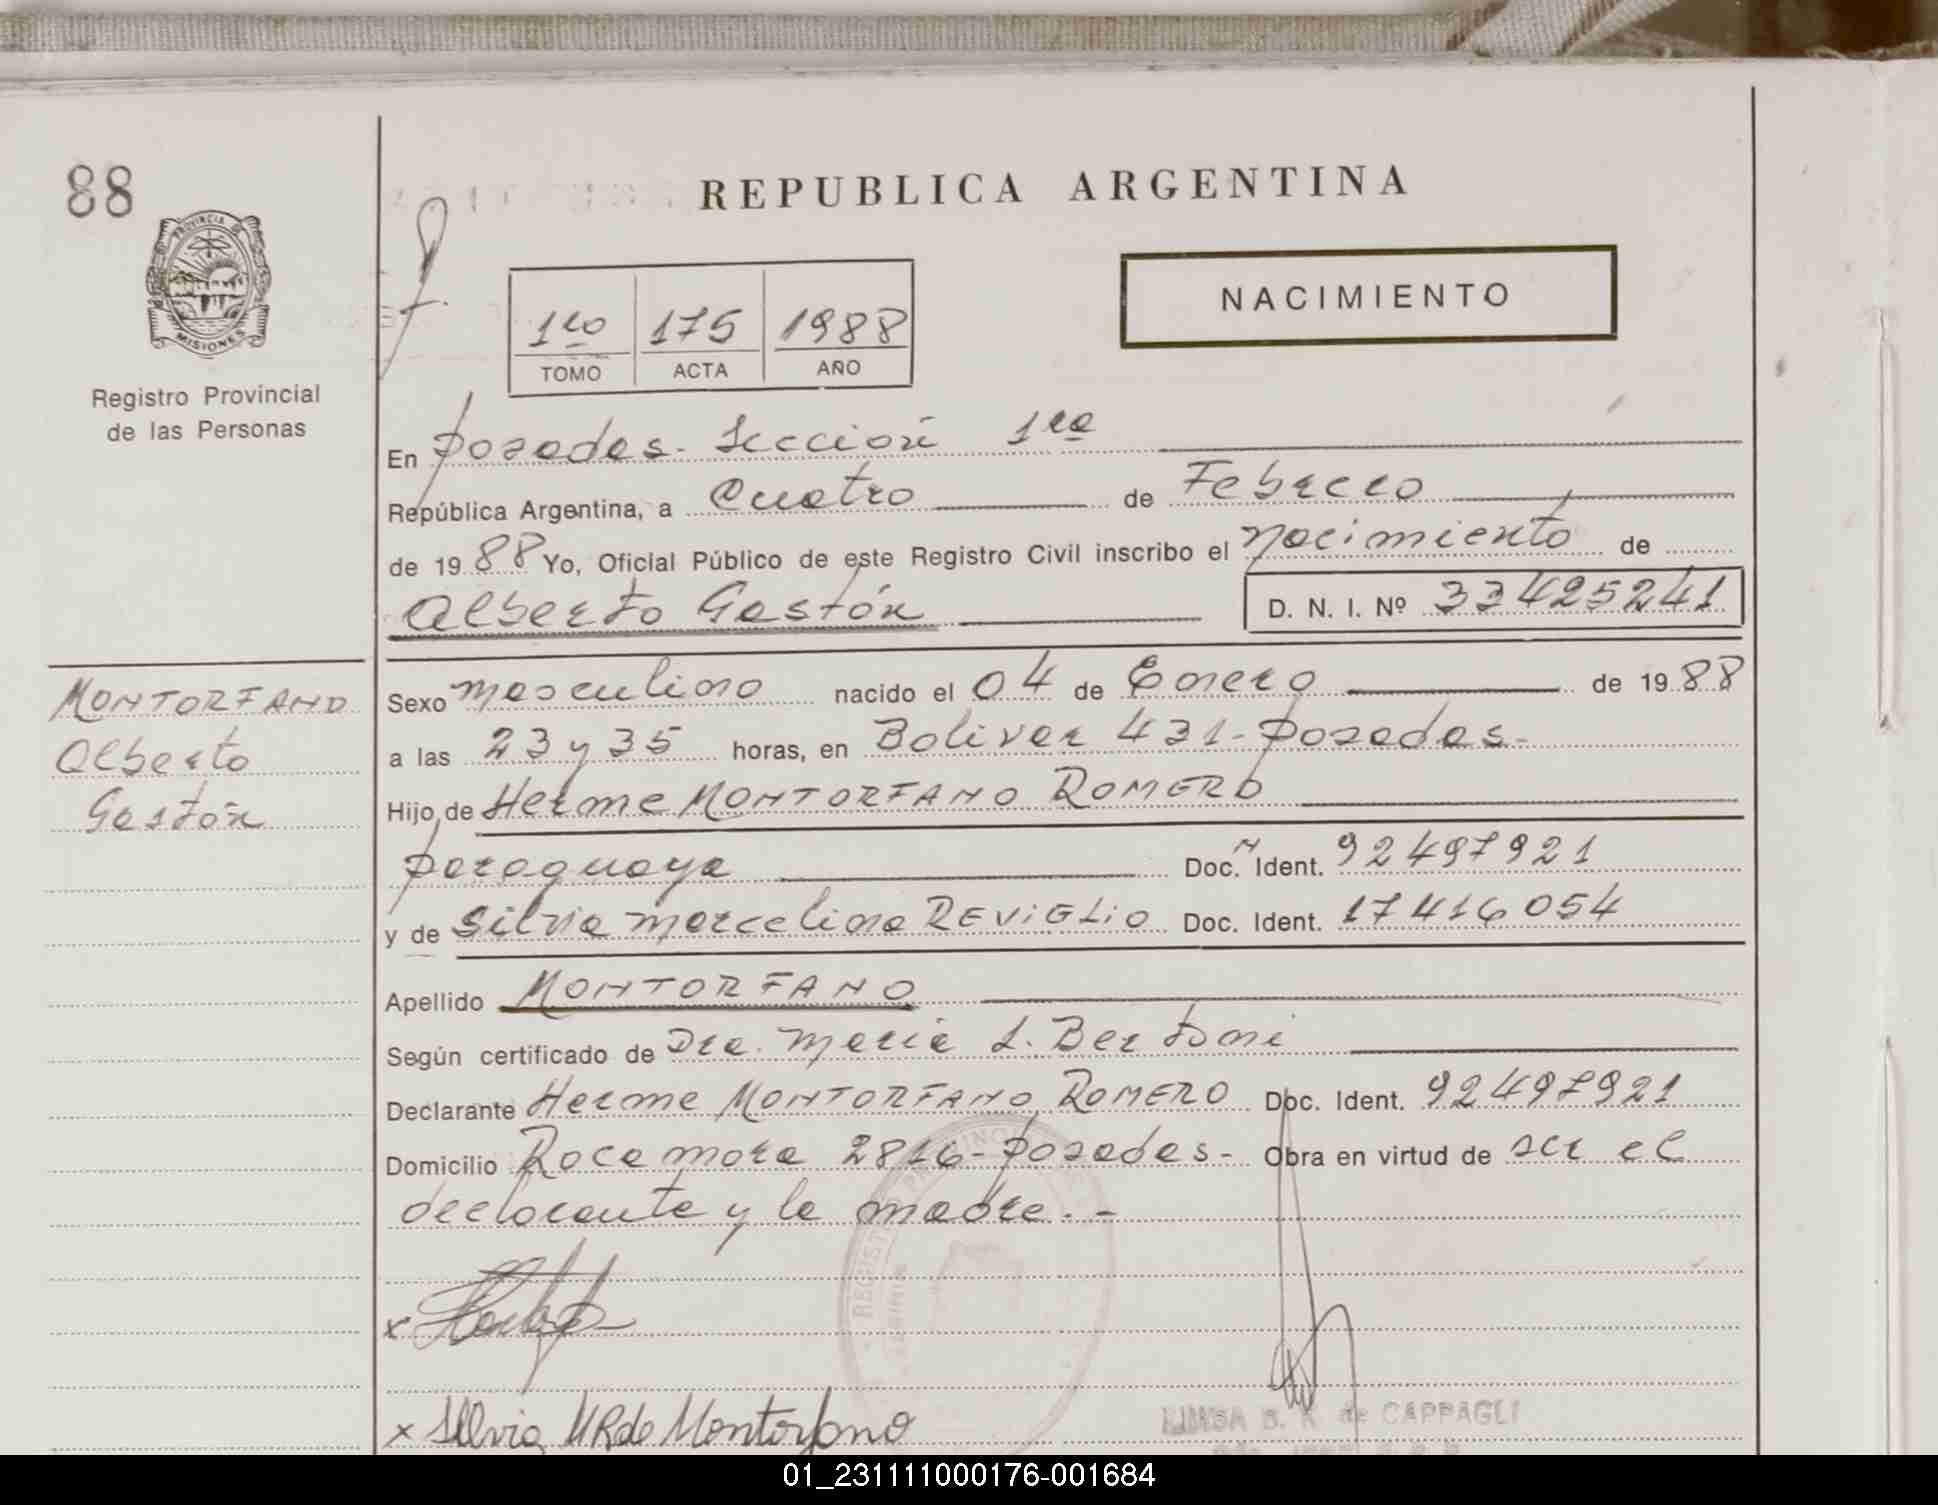 88
PROVINCIA
MISIONES
Registro Provincial
de las Personas
REPUBLICA ARGENTINA
NACIMIENTO
1ro 175 1988
TOMO ACTA AÑO
En Posadas - Sección 1ra
República Argentina, a Cuatro de Febrero
de 1988 Yo, Oficial Público de este Registro Civil inscribo el nacimiento de
Alberto Gastón D. N. I. Nº 33425241
MONTORFANO
Alberto
Gastón
Sexo masculino nacido el 04 de Enero de 1988
a las 23 y 35 horas, en Bolivar 431 - Posadas -
Hijo de Herme MONTORFANO ROMERO
paraguaya Doc. Ident. 92497921
y de Silvia Marcelina REVIGLIO Doc. Ident. 17416054
Apellido MONTORFANO
Según certificado de Dra. Maria L. Bertoni
Declarante Herme MONTORFANO ROMERO Doc. Ident. 92497921
Domicilio Rocamora 2816 - Posadas - Obra en virtud de ser el
declarante y la madre . -
REGISTRO
x
x Silvia MR de Montorfano
de CAPPAGLI
01_231111000176-001684